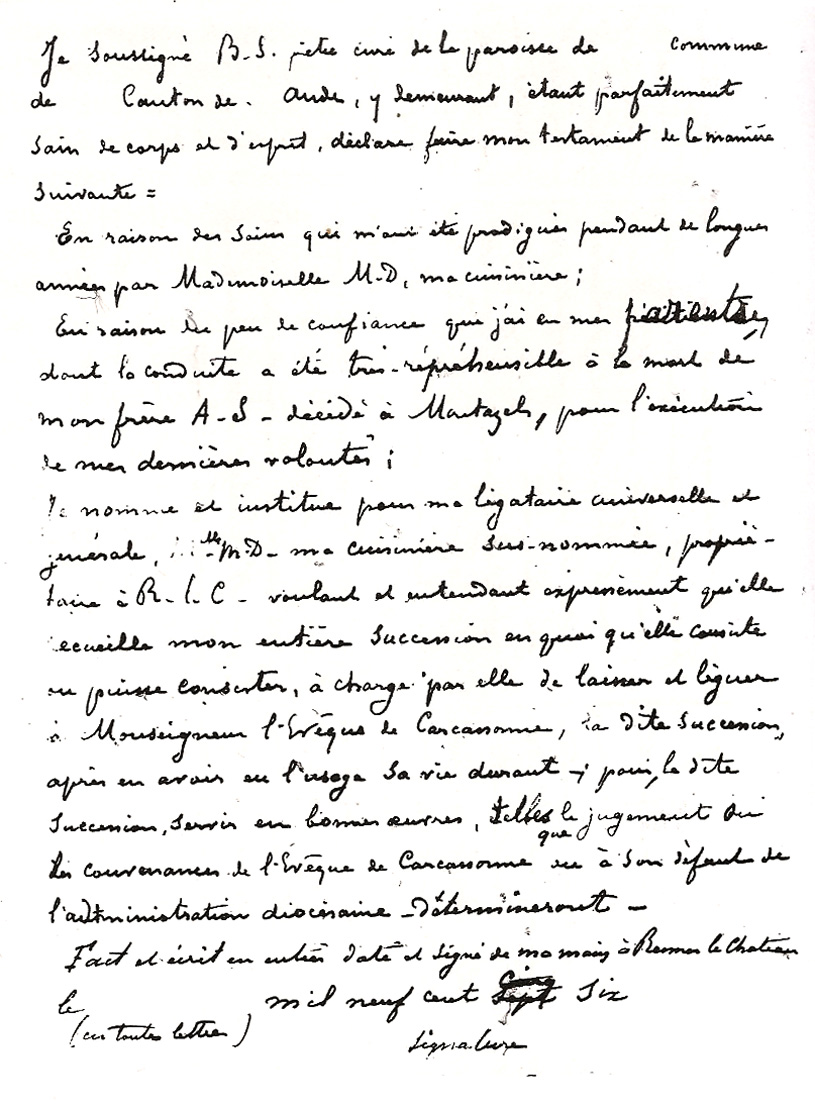 Je soussigné B.S. prêtre curé de la paroisse de commune
de Canton de. Aude, y demeurant, étant parfaitement
sain de corps et d'esprit, déclare faire mon testament de la manière
suivante =
En raison des soins qui m'ont été prodigués pendant de longues
années par Mademoiselle M-D, ma cuisinière ;
En raison du peu de confiance que j'ai en mes parents,
dont la conduite a été très-répréhensible à la mort de
mon frère A-S- décédé à Montazels, pour l'exécution
de mes dernières volontés ;
Je nomme et institue pour ma légataire universelle et
générale, Mlle M-D- ma cuisinière sus-nommée, proprié-
taire à R-l-C- voulant et entendant expressément qu'elle
recueille mon entière succession en quoi qu'elle consiste
ou puisse consister, à charge par elle de laisser et léguer
à Monseigneur l'Evêque de Carcassonne, la dite succession,
après en avoir eu l'usage sa vie durant -; pour, la dite
succession, servir en bonnes œuvres, telles que le jugement ou
les convenances de l'Evêque de Carcassonne ou à son défaut de
l'administration diocésaine - détermineront -
Fact et écrit en entier daté et signé de ma main à Rennes le Chateau
le mil neuf cent cinq sept six
(en toutes lettres) signature